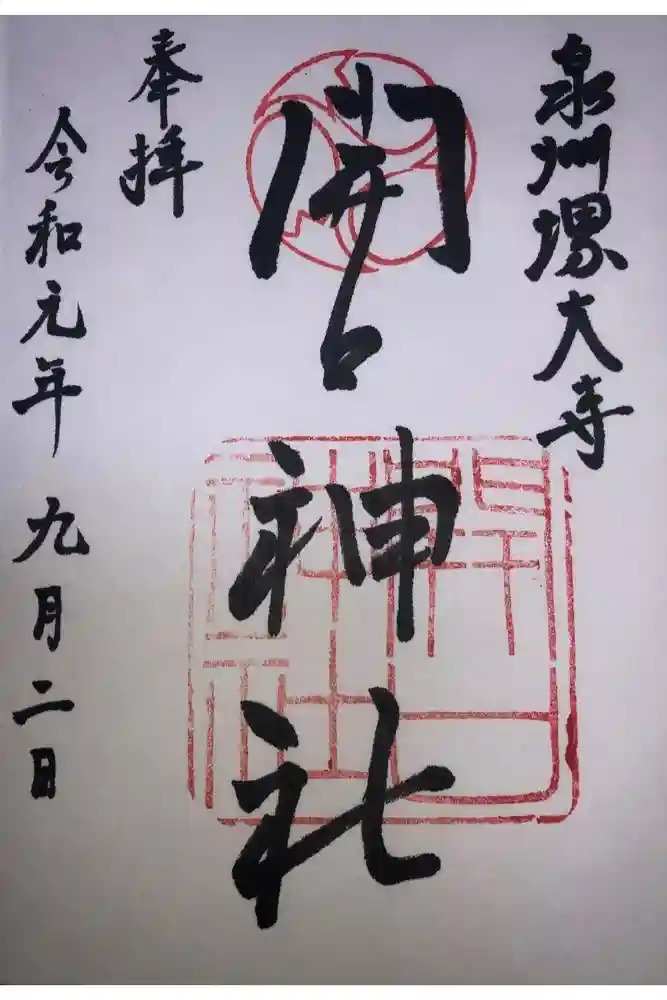 泉州堺大寺
開口神社
奉拝
令和元年九月二日
開口神社